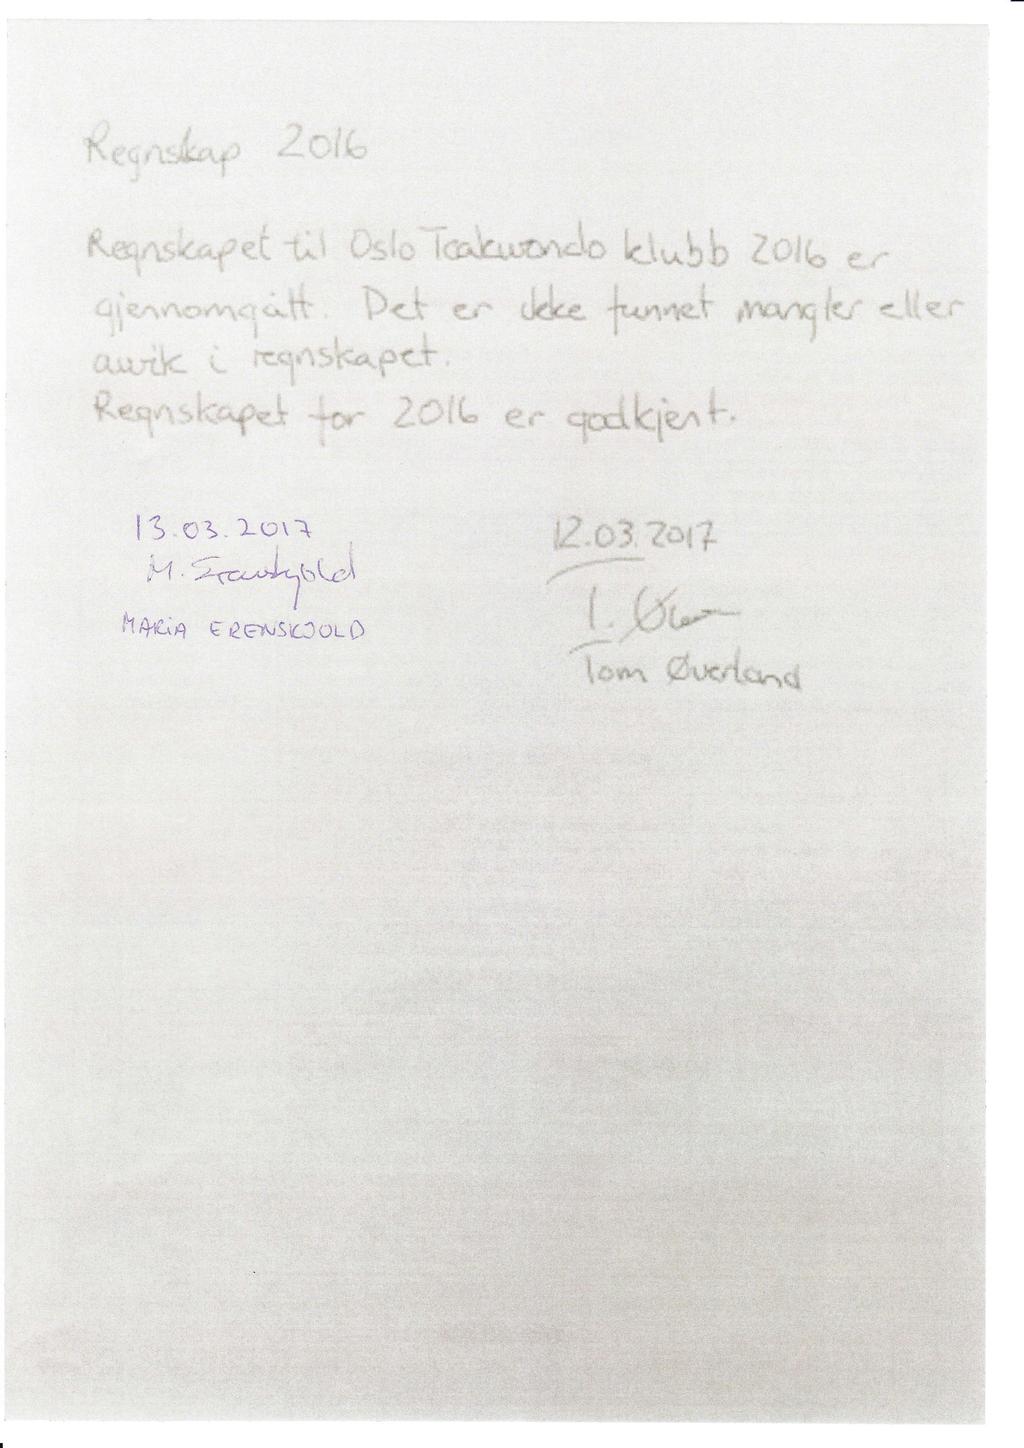 Regnskap 2016
Regnskapet til Oslo Teakwondo klubb 2016 er
gjennomgått. Det er ikke funnet mangler eller
avvik i regnskapet.
Regnskapet for 2016 er godkjent.
13.03.2017
12.03.2017
M.
T.
MARIA ERENSKJOLD
Tom Øverland